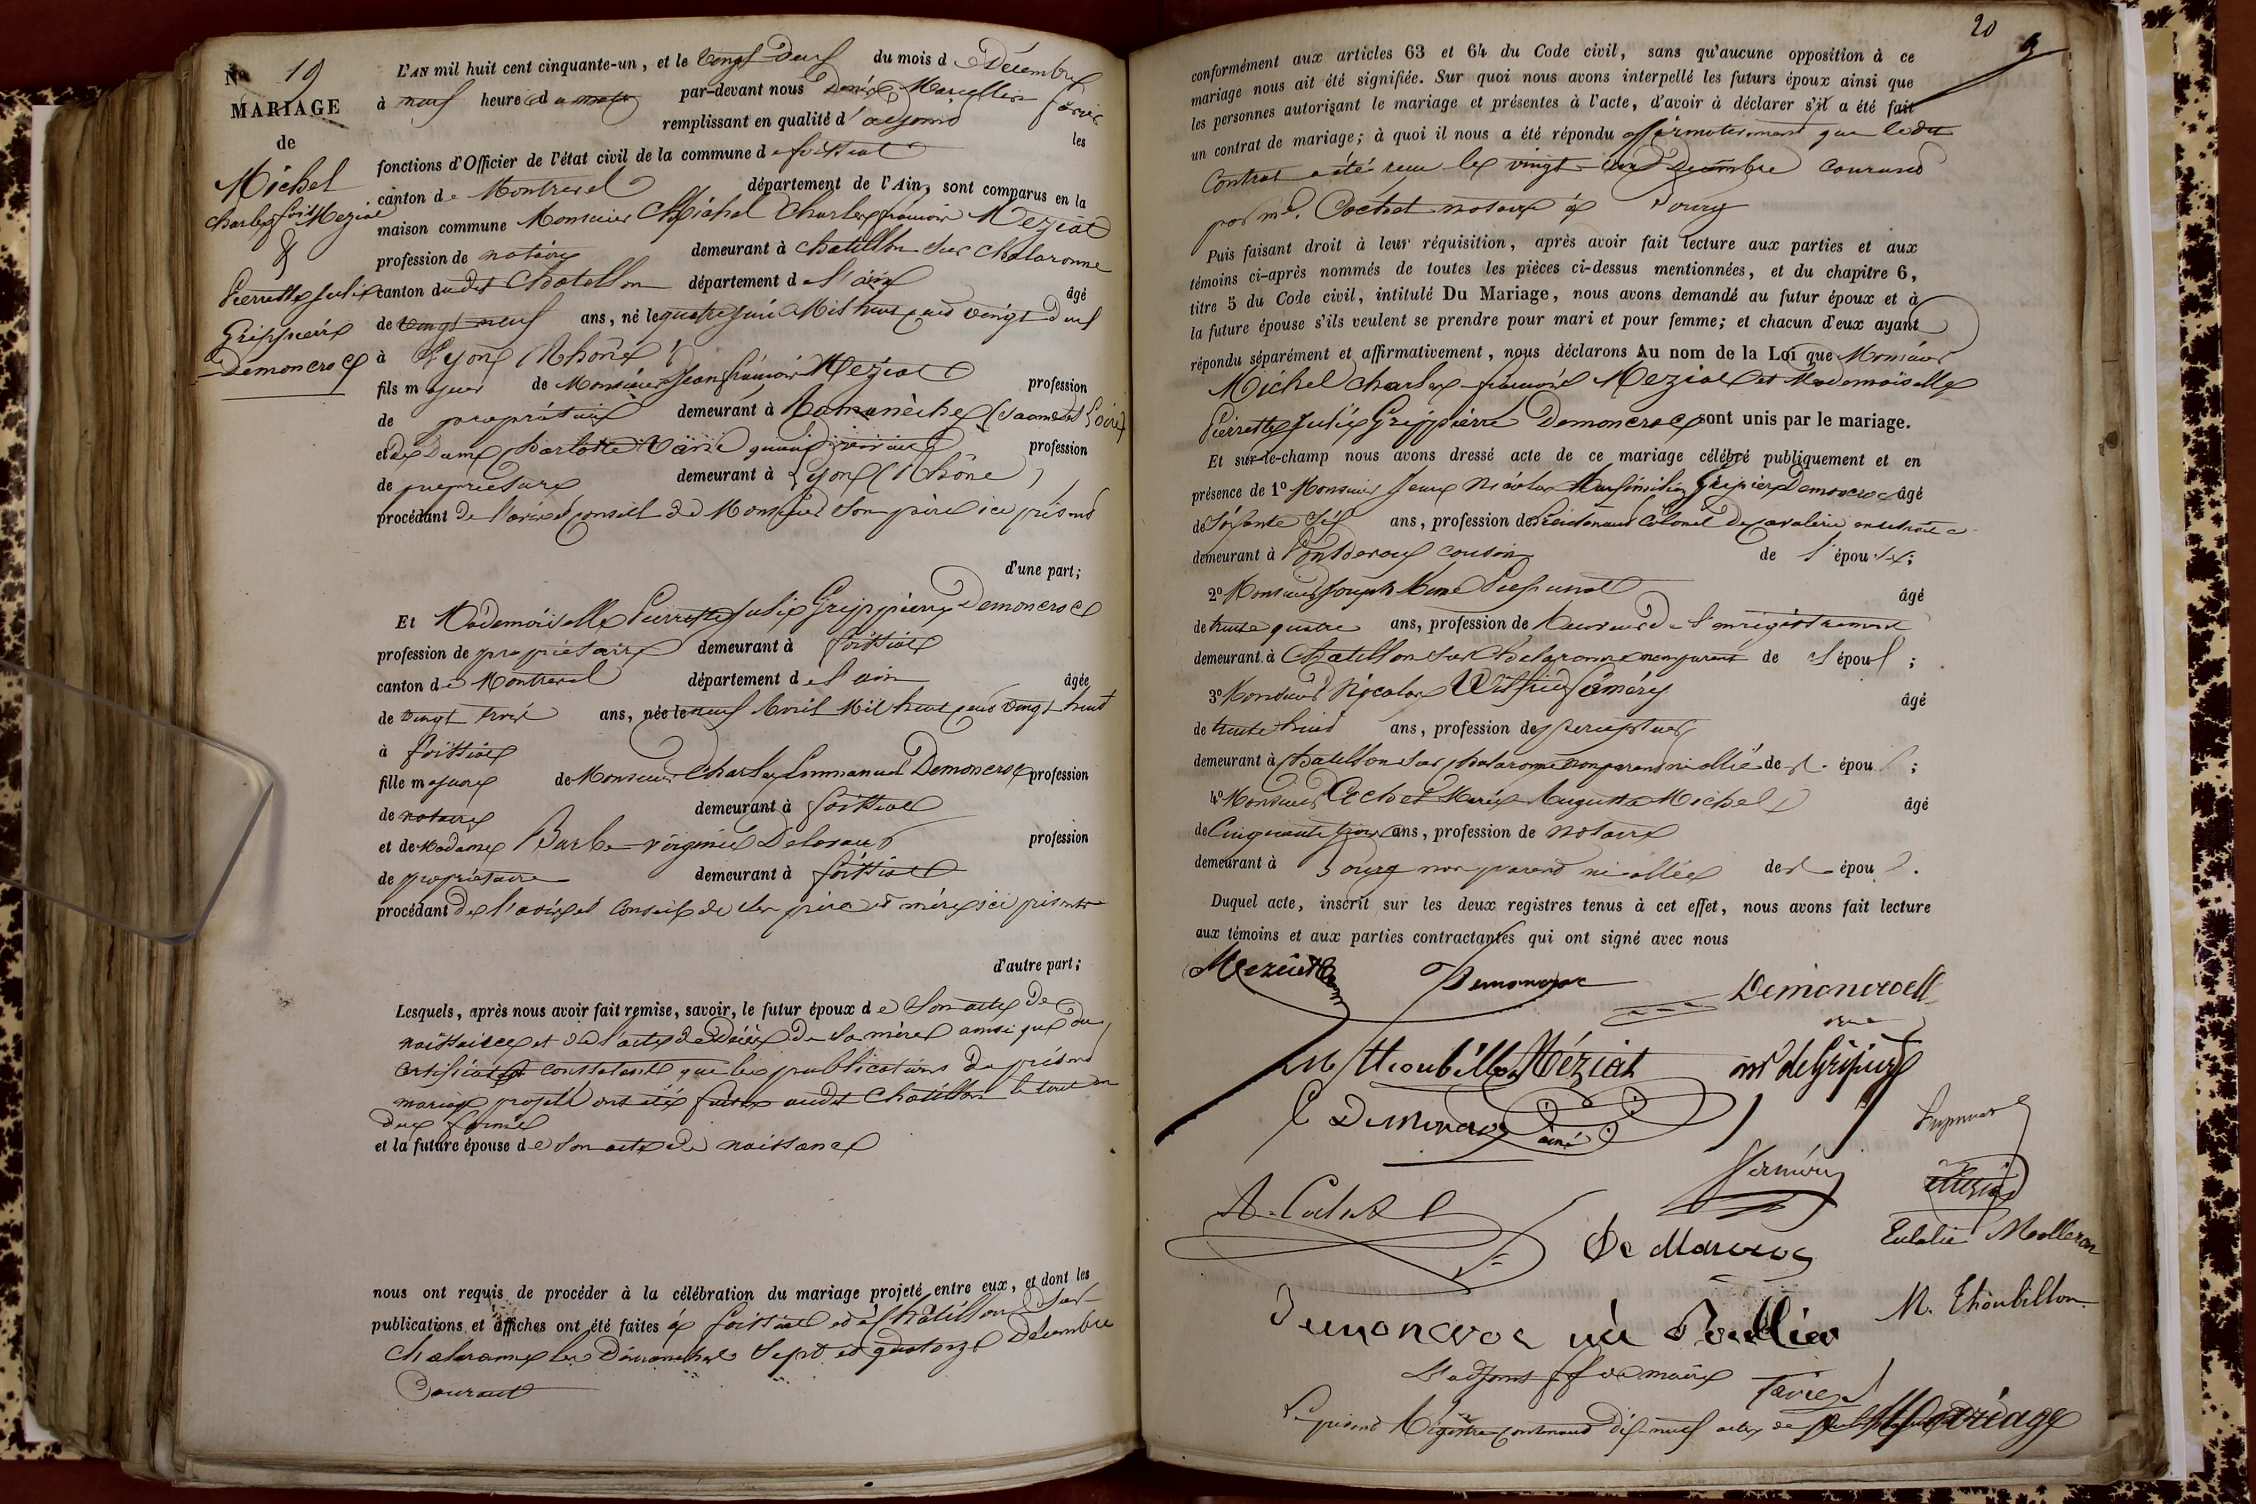 N° 19
MARIAGE
de
Michel
Charles fois Meziat
&
Pierrette Julie
Grippière
Demoncroc
L'AN mil huit cent cinquante-un, et le vingt Deux du mois d e Décembre
à neuf heure s d u matin par-devant nous Denis Marcellin favier
remplissant en qualité d'adjoint les
fonctions d'Officier de l'état civil de la commune d e foissiat
canton d e Montrevel département de l'Ain, sont comparus en la
maison commune Monsieur Michel Charles françois Meziat
profession de notaire demeurant à chatillon sur Chalaronne
canton du dit Chatillon département d e l'ain âgé
de vingt neuf ans, né le quatre juin Mil huit cent vingt Deux
à Lyon (Rhône)
fils majeur de Monsieur Jean françois Meziat profession
de propriétaire demeurant à Romanèche (Saone et Loire)
et de Dame Charlotte profession
de propriétaire demeurant à Lyon (Rhône)
procédant de l'avis et conseil de Monsieur Son père ici présent
d'une part;
Et Mademoiselle Pierrette Julie Grippière Demoncroc
profession de propriétaire demeurant à foissiat
canton d e Montrevel département d e l'ain âgée
de vingt trois ans, née le neuf Avril Mil huit cent vingt huit
à foissiat
fille majeure de Monsieur Charles Emmanuel Demoncroc profession
de notaire demeurant à foissiat
et de Madame Barbe virginie Delorant profession
de propriétaire demeurant à foissiat
procédant de l'avis et Conseil de ses père et mère ici présents
d'autre part;
Lesquels, après nous avoir fait remise, savoir, le futur époux d e Son acte De
naissance et de l'acte de Décès De Sa mère ainsi que du
certificat constatant que les publications du présent
mariage projeté ont été faites audit Chatillon le tout en
due forme
et la future épouse d e Son acte de naissance
nous ont requis de procéder à la célébration du mariage projeté entre eux, et dont les
publications et affiches ont été faites à foissiat et à Chatillon Sur
Chalaronne les Dimanches Sept et quatorze Décembre
Courant
20
conformément aux articles 63 et 64 du Code civil, sans qu'aucune opposition à ce
mariage nous ait été signifiée. Sur quoi nous avons interpellé les futurs époux ainsi que
les personnes autorisant le mariage et présentes à l'acte, d'avoir à déclarer s'il a été fait
un contrat de mariage; à quoi il nous a été répondu affirmativement que ledit
Contrat a été reçu le vingt un Décembre courant
par me. Cochet notaire à Bourg
Puis faisant droit à leur réquisition, après avoir fait lecture aux parties et aux
témoins ci-après nommés de toutes les pièces ci-dessus mentionnées, et du chapitre 6,
titre 5 du Code civil, intitulé Du Mariage, nous avons demandé au futur époux et à
la future épouse s'ils veulent se prendre pour mari et pour femme; et chacun d'eux ayant
répondu séparément et affirmativement, nous déclarons Au nom de la Loi que Monsieur
Michel Charles françois Meziat et Mademoiselle
Pierrette Julie Grippière Demoncroc sont unis par le mariage.
Et sur-le-champ nous avons dressé acte de ce mariage célébré publiquement et en
présence de 1° Monsieur Jean Nicolas Maximilien Gripière Demoncroc âgé
de Soixante Six ans, profession de Lieutenant Colonel De cavalerie en retraite
demeurant à Pontdevaux cousin de l'épou se;
2° Monsieur Joseph âgé
de trente quatre ans, profession de Receveur De l'enregistrement
demeurant à Chatillon Sur Chalaronne non parent de l'épou x;
3° Monsieur Nicolas Wilfrid Séméry âgé
de trente huit ans, profession de percepteur
demeurant à Chatillon Sur Chalaronne non parent ni allié de l' épou x;
4° Monsieur Cochet Marie Auguste Michel âgé
de Cinquante trois ans, profession de Notaire
demeurant à Bourg non parent ni allié de l' épou x.
Duquel acte, inscrit sur les deux registres tenus à cet effet, nous avons fait lecture
aux témoins et aux parties contractantes qui ont signé avec nous
Meziat
Demoncroc
Demoncroc
M Thoubillon Méziat
de Gripière
C Demoncroc ainé
A. Cochet
De Moncroc
Eulalie Molleron
Demoncroc née Roullier
M. Thoubillon
L'adjoint ff de maire
Favier
Le présent Registre contenant dix-neuf actes de Mariage